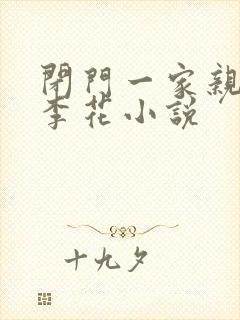 閉門一家親
李花小説
十九夕